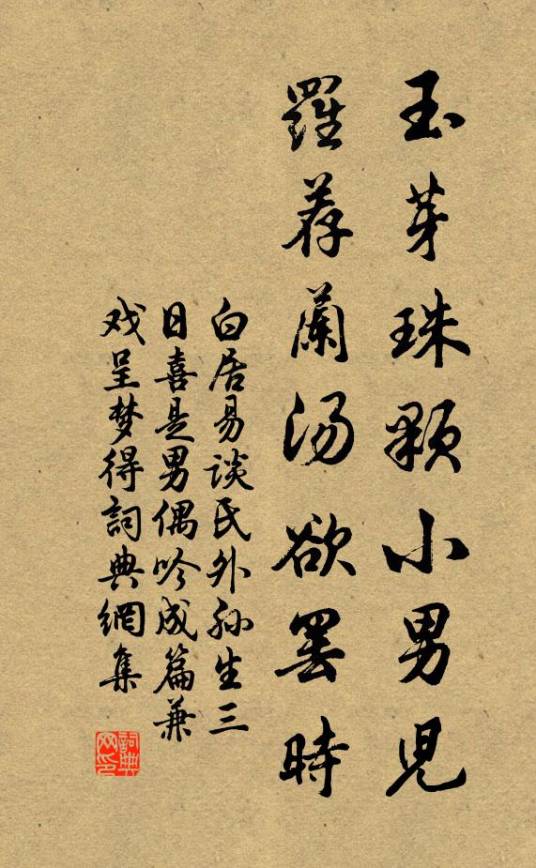 玉芽珠顆小男兒
羅荐蘭汤欲罢時
白居易谈氏外孙生三
日喜是男偶吟成篇兼
戏呈梦得詞典網集
詞典
网印